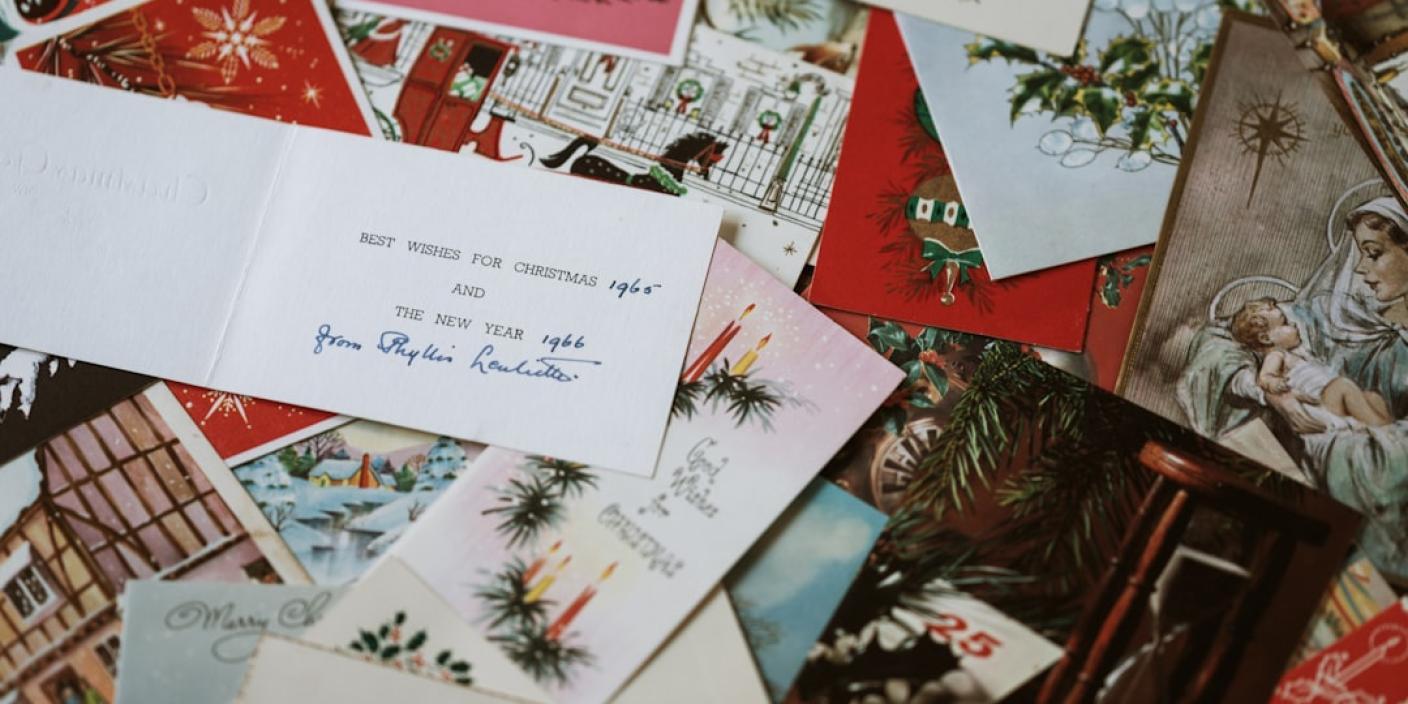 BEST WISHES FOR CHRISTMAS 1965
AND
THE NEW YEAR 1966
from Phyllis
Good
Wishes
for
CHRISTMAS
Merry
25